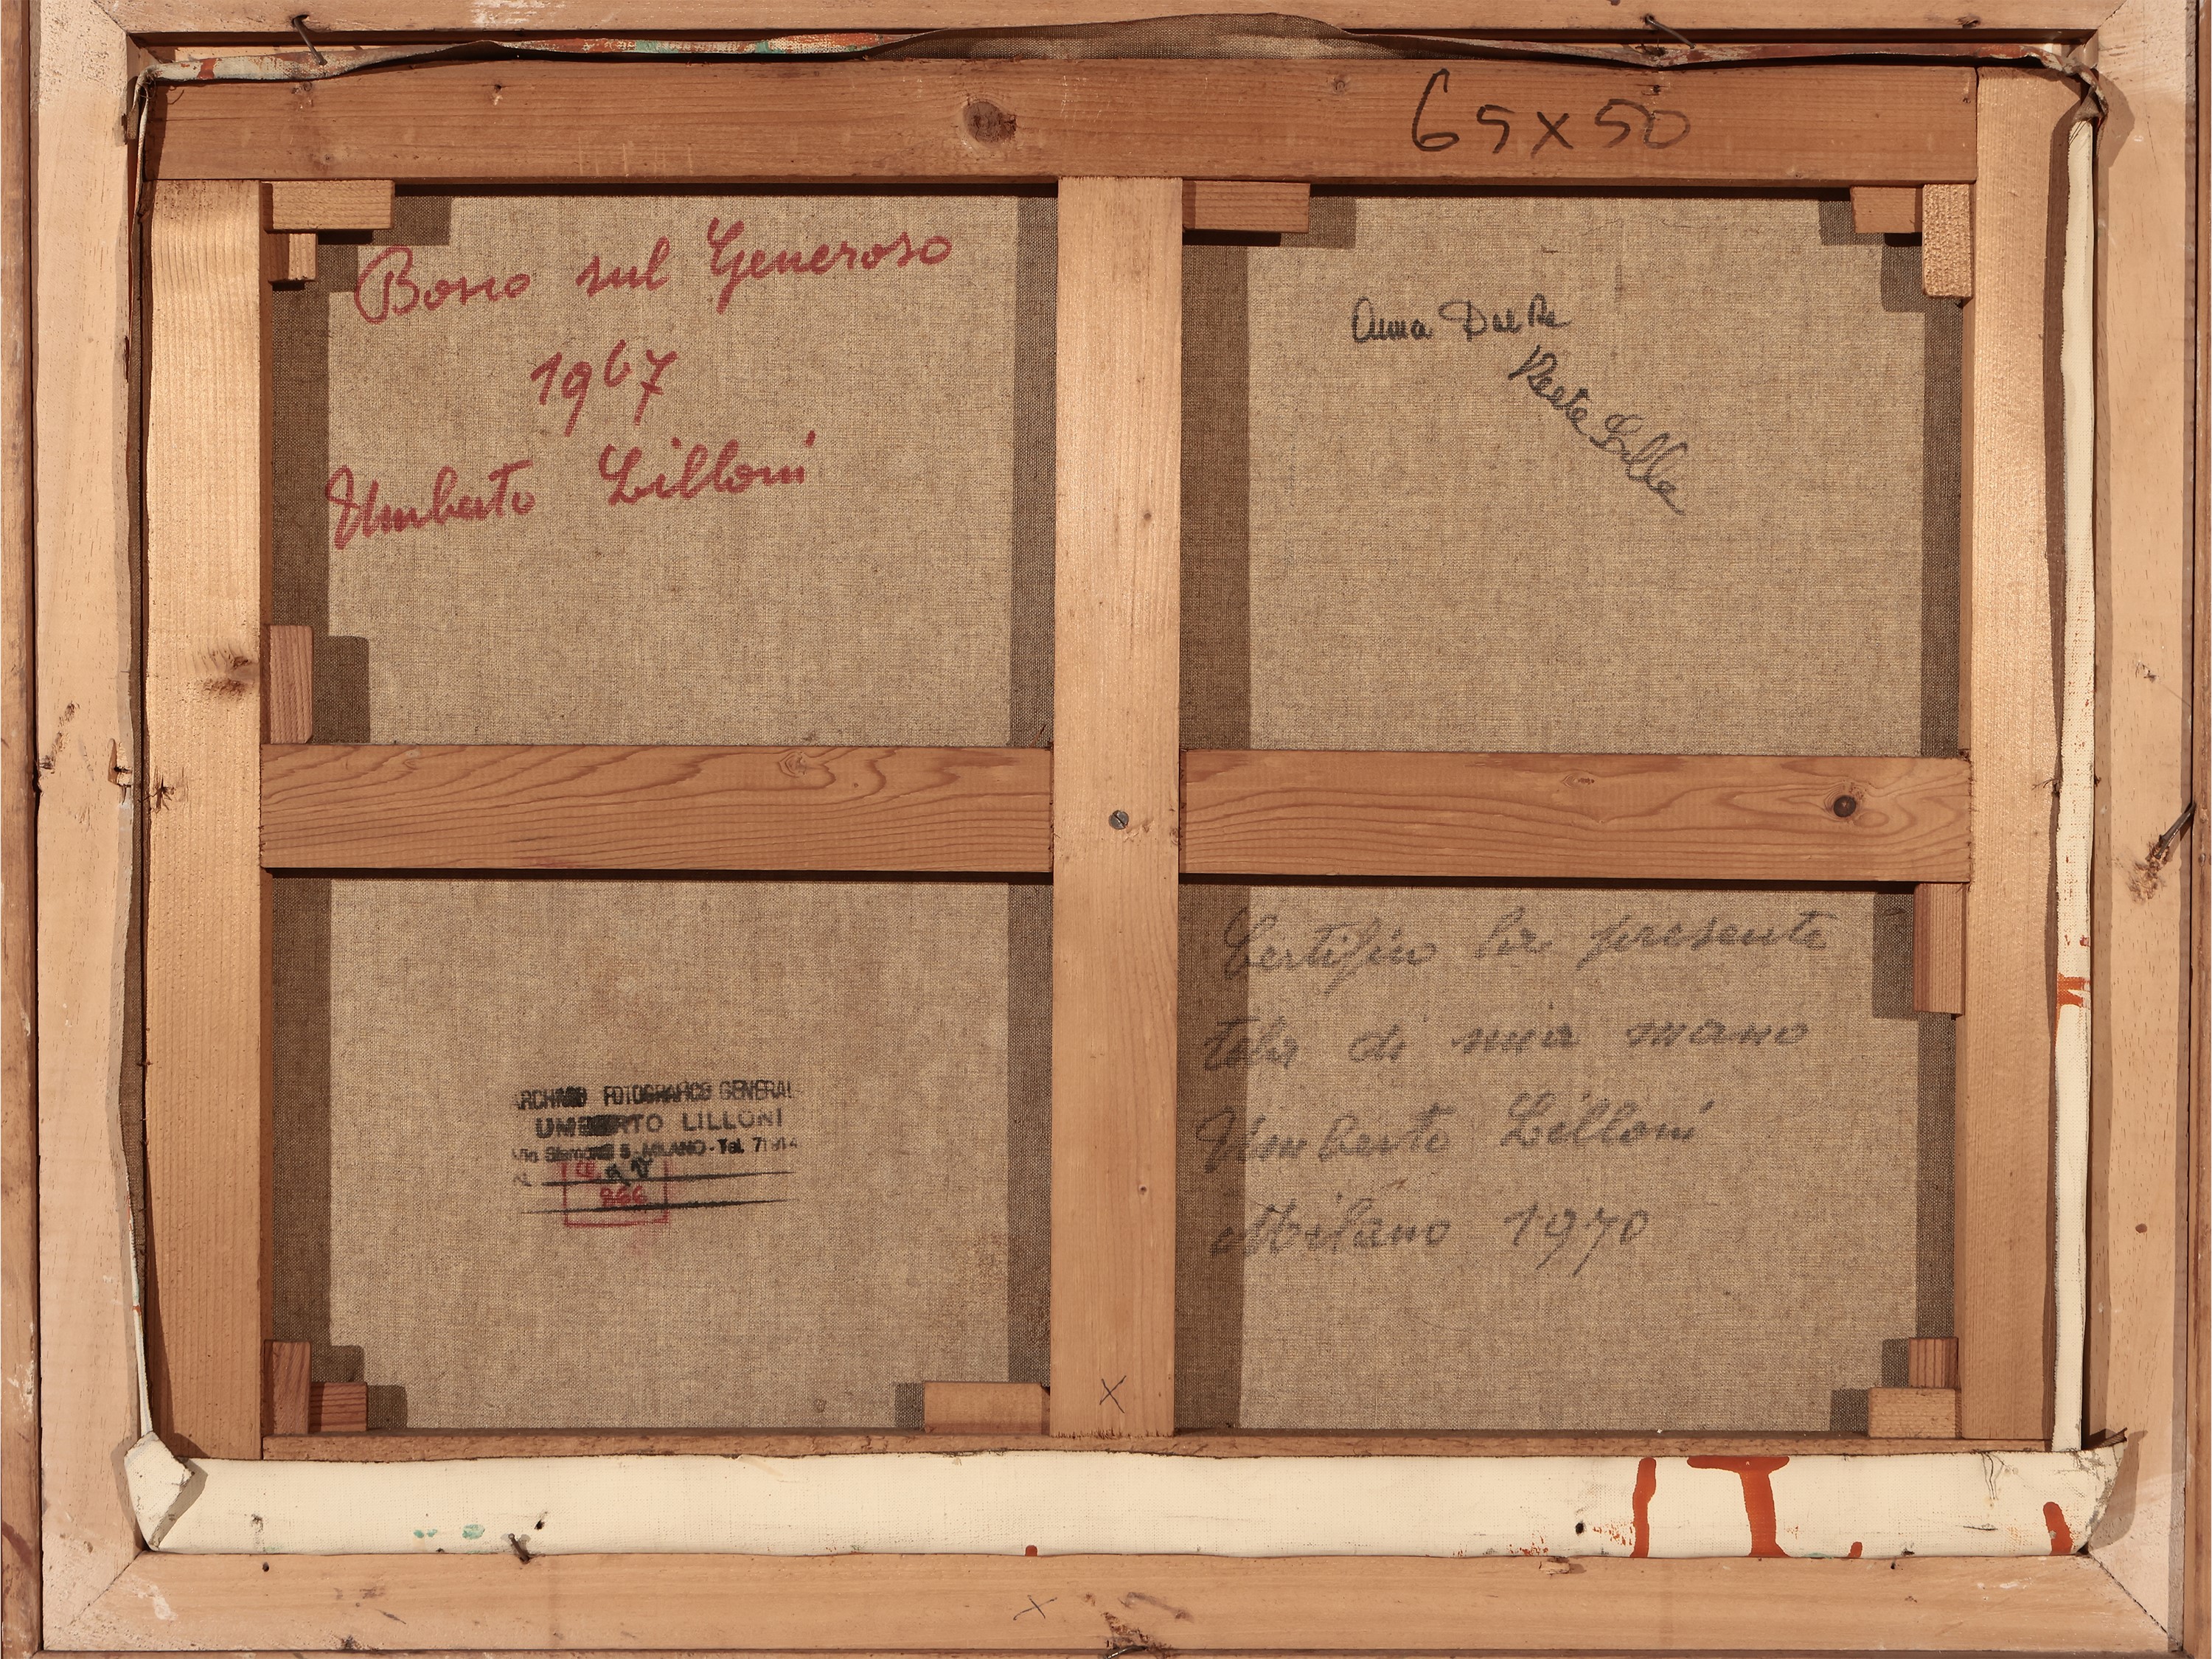 65x50
Bosco sul Generoso
1967
Umberto Lilloni
Anna Dal Re
ARCHIVIO FOTOGRAFICO GENERAL
UMBERTO LILLONI
MILANO - Tel.
966
Certifico la presente
tela di mia mano
Umberto Lilloni
Milano 1970
X
X